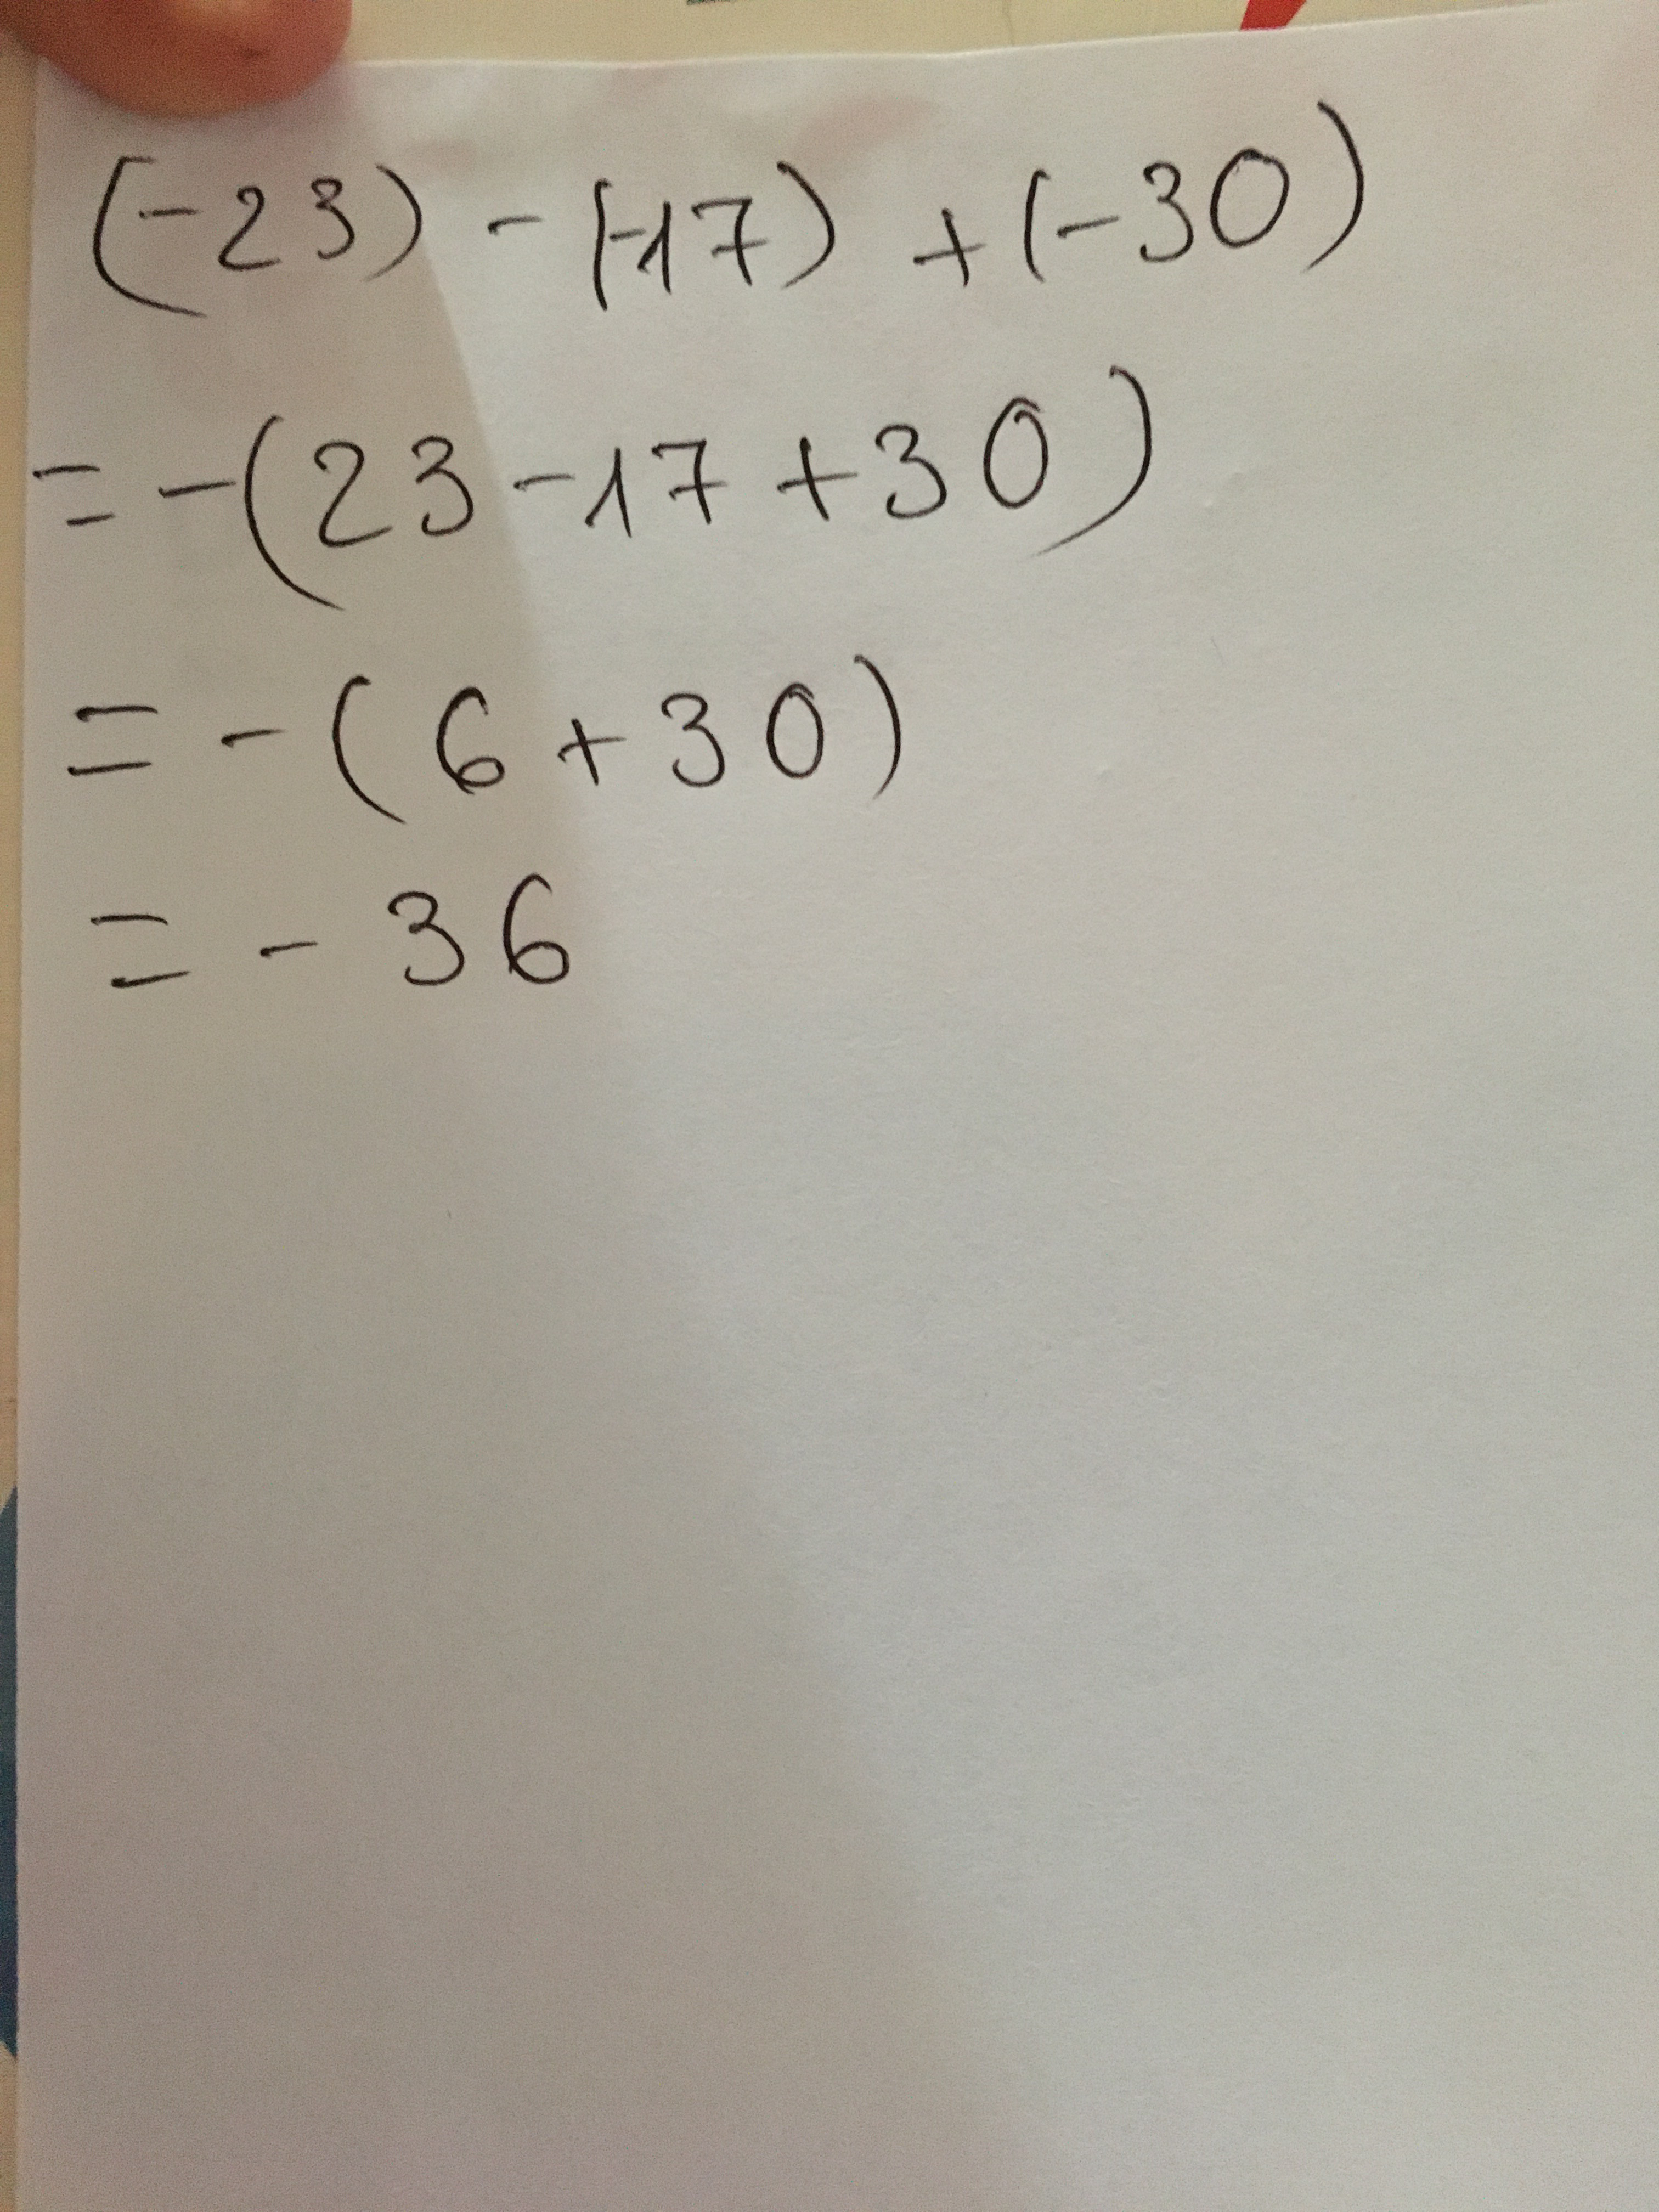 (-23) - (-17) + (-30)
= -(23 - 17 + 30)
= - (6 + 30)
= - 36